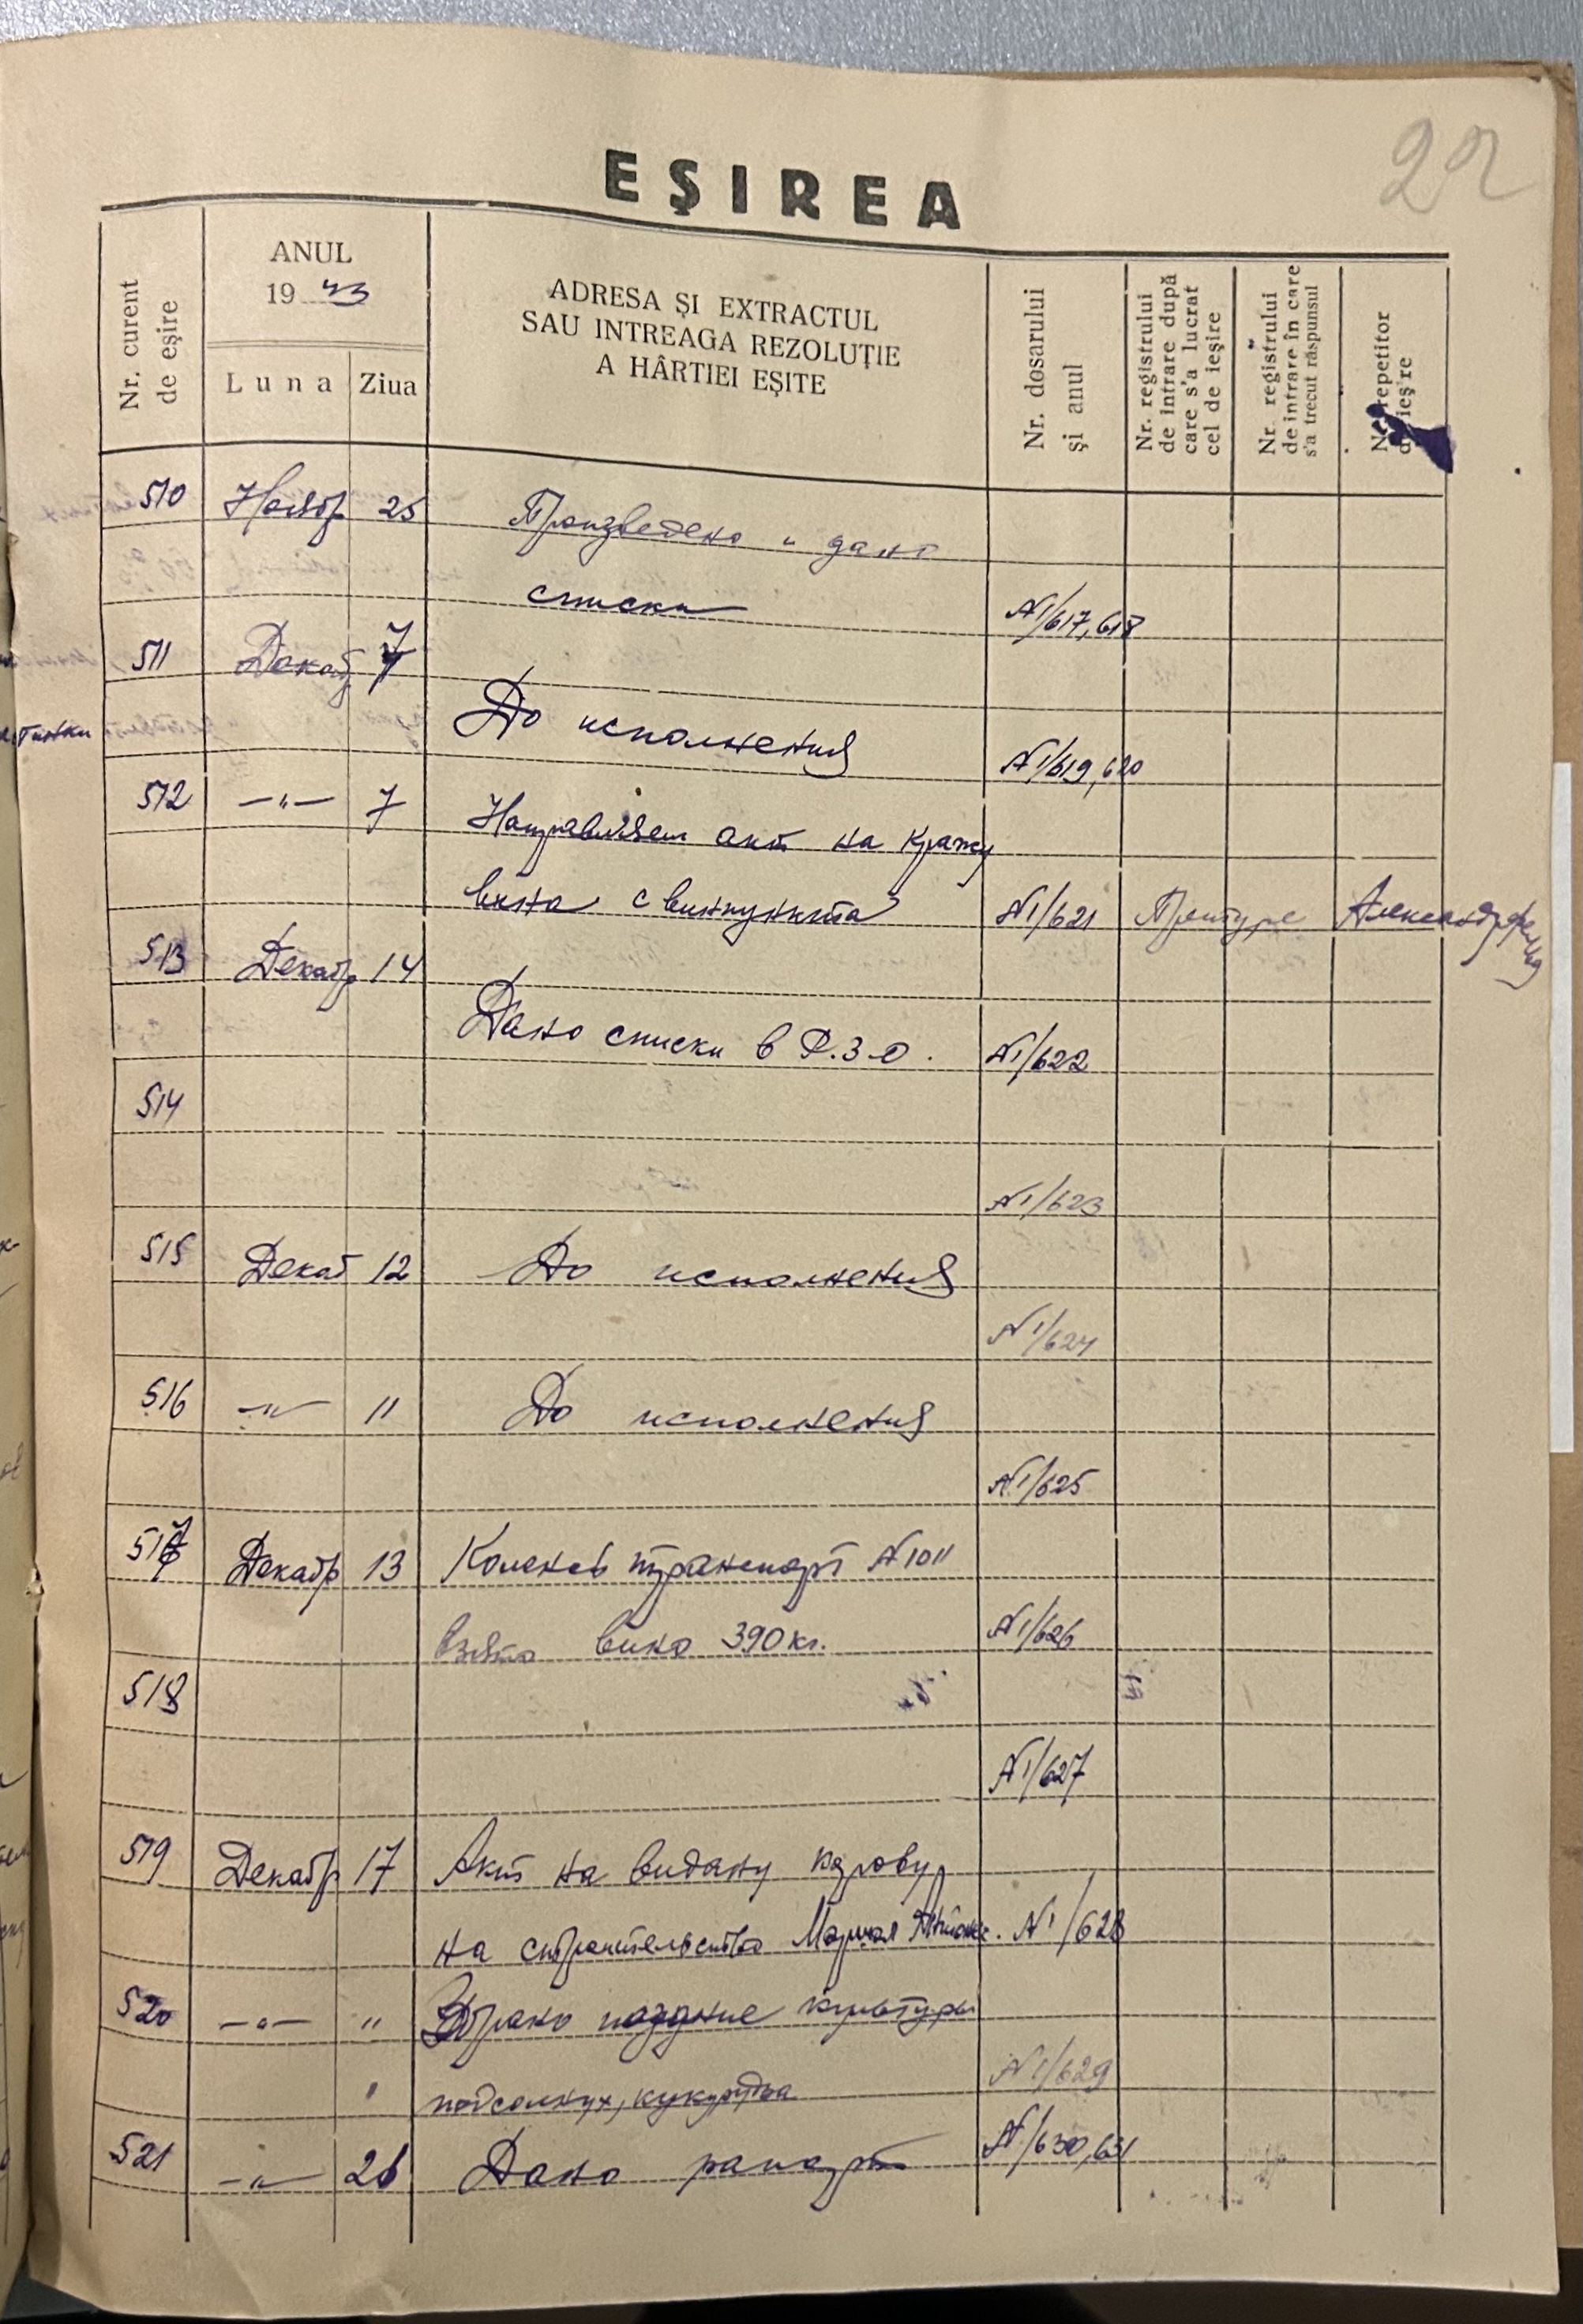 22
EȘIREA
Nr. curent de eșire
ANUL
1943
Luna
Ziua
ADRESA ȘI EXTRACTUL
SAU INTREAGA REZOLUȚIE
A HÂRTIEI EȘITE
Nr. dosarului
și anul
Nr. registrului
de intrare după
care s'a lucrat
cel de ieșire
Nr. registrului
de intrare în care
s'a trecut răspunsul
repetitor
ieș're
510 Наябр 25 Произведено и дано
списки N1/617,618
511 Декаб 7
До исполнения N1/619,620
512 —"— 7 Направляем акт на кражу
вина с винпункта N1/621 Претуре
513 Декабр 14
Дано списки в Р.З.О. N1/622
514
N1/623
515 Декаб 12 До исполнения
N1/624
516 —"— 11 До исполнения
N1/625
517 Декабр 13 транспорт N1011
взято вино 390 кг. N1/626
518
N1/627
519 Декабр 17 Акт на видану корову
на N1/628
520 —"— " Збрано поздние культуры
" подсолнух, кукурудза N1/629
521 —"— 26 Дано рапорт N/630,631